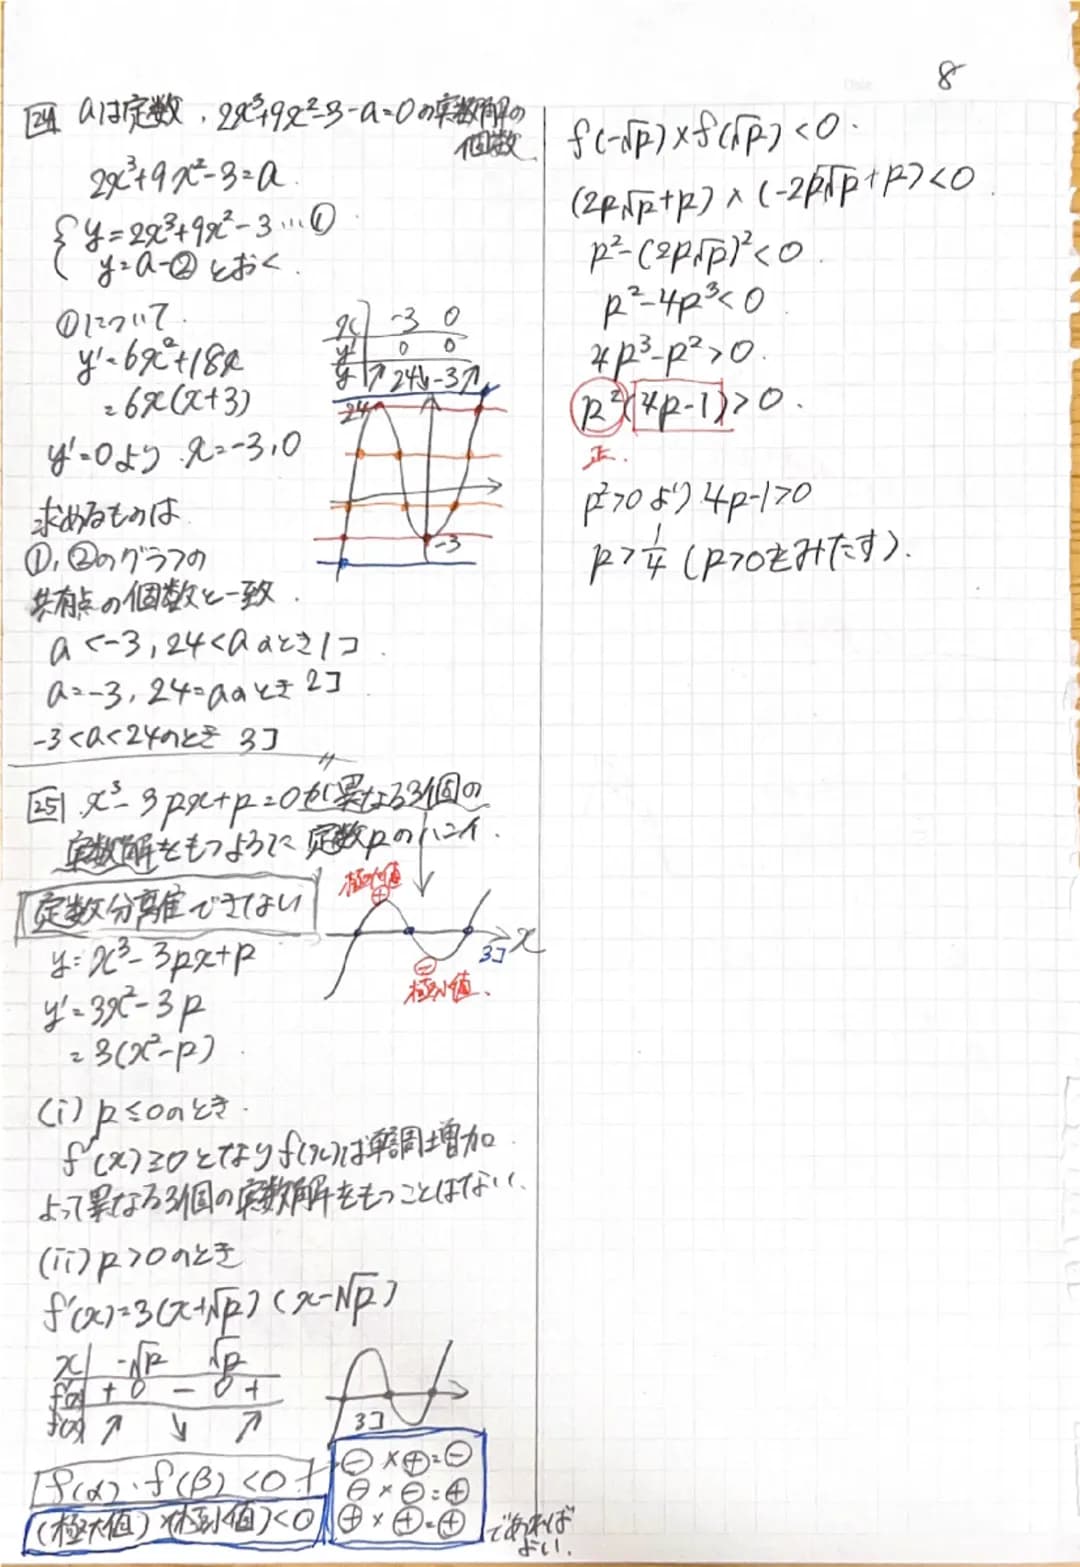 8
24 aは定数, 2x³+9x²-3-a=0の実数解の
個数
2x³+9x²-3=a
{ y=2x³+9x²-3…①
y=a-② とおく
①について
y'=6x²+18x
=6x(x+3)
y'=0より x=-3,0
x -3 0
y' 0 0
y ↗ 24 ↘ -3 ↗
24
-3
求めるものは
①,②のグラフの
共有点の個数と一致
a<-3, 24<aのとき1コ
a=-3, 24=aのとき 2コ
-3<a<24のとき 3コ
25 x³-3px+p=0が異なる3個の
実数解をもつように 定数pのハンイ.
定数分離できてない
極大値
⊕
x
3コ
⊖
極小値
y=x³-3px+p
y'=3x²-3p
=3(x²-p)
(i) p≤0のとき
f'(x)≥0となりf(x)は単調増加
よって異なる3個の実数解をもつことはない.
(ii) p>0のとき
f'(x)=3(x+√p)(x-√p)
x -√p √p
f'(x) + 0 - 0 +
f(x) ↗ ↘ ↗
3コ
f(α)・f(β)<0
(極大値)×(極小値)<0
⊖×⊕=⊖
⊖×⊖=⊕
⊕×⊕=⊕
であれば
よい.
f(-√p)×f(√p)<0.
(2p√p+p)×(-2p√p+p)<0
p²-(2p√p)²<0
p²-4p³<0
4p³-p²>0.
p²(4p-1)>0.
正.
p²>0より 4p-1>0
p>1/4 (p>0をみたす).